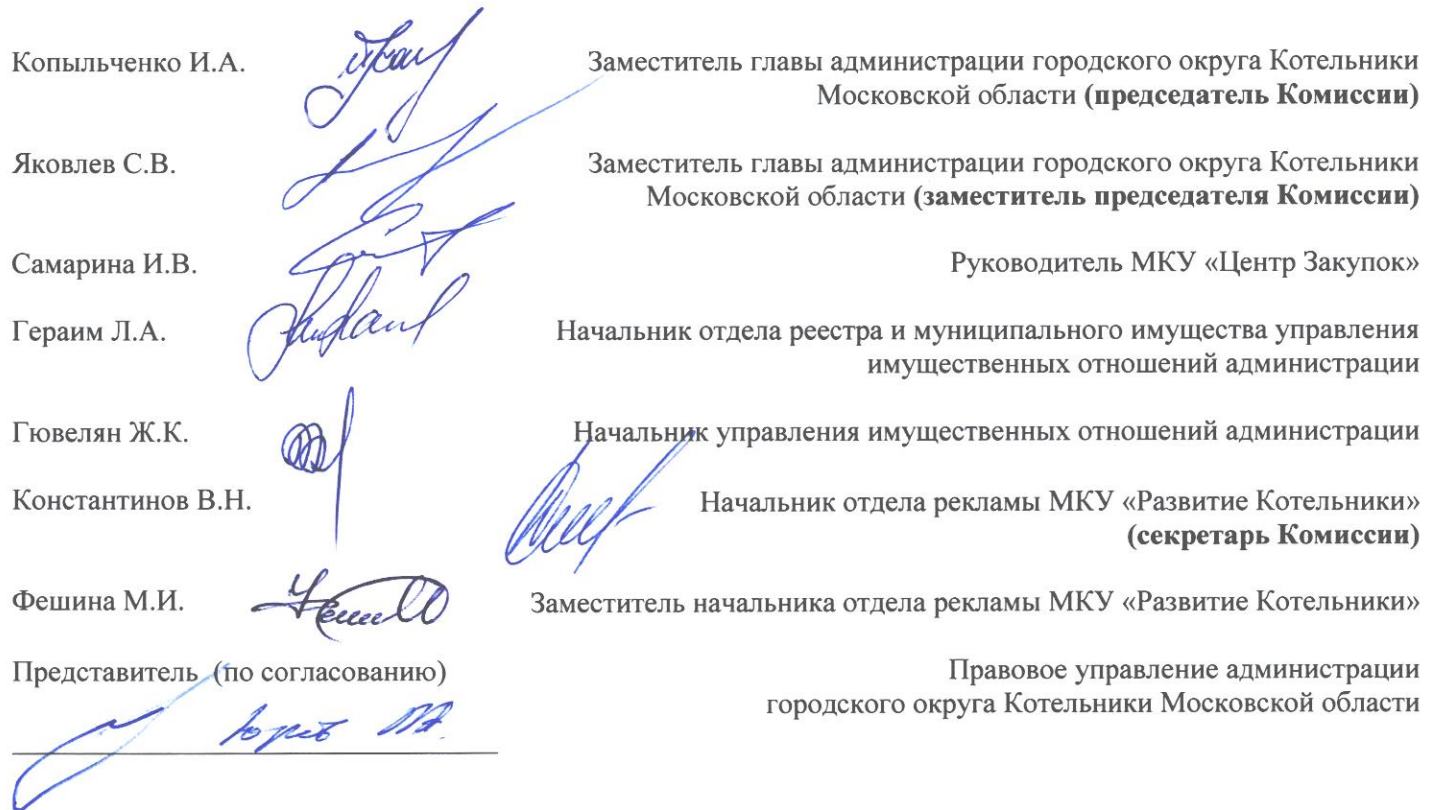 Копыльченко И.А.
Заместитель главы администрации городского округа Котельники
Московской области (председатель Комиссии)
Яковлев С.В.
Заместитель главы администрации городского округа Котельники
Московской области (заместитель председателя Комиссии)
Самарина И.В.
Руководитель МКУ «Центр Закупок»
Гераим Л.А.
Начальник отдела реестра и муниципального имущества управления
имущественных отношений администрации
Гювелян Ж.К.
Начальник управления имущественных отношений администрации
Константинов В.Н.
Начальник отдела рекламы МКУ «Развитие Котельники»
(секретарь Комиссии)
Фешина М.И.
Заместитель начальника отдела рекламы МКУ «Развитие Котельники»
Представитель (по согласованию)
Правовое управление администрации
городского округа Котельники Московской области